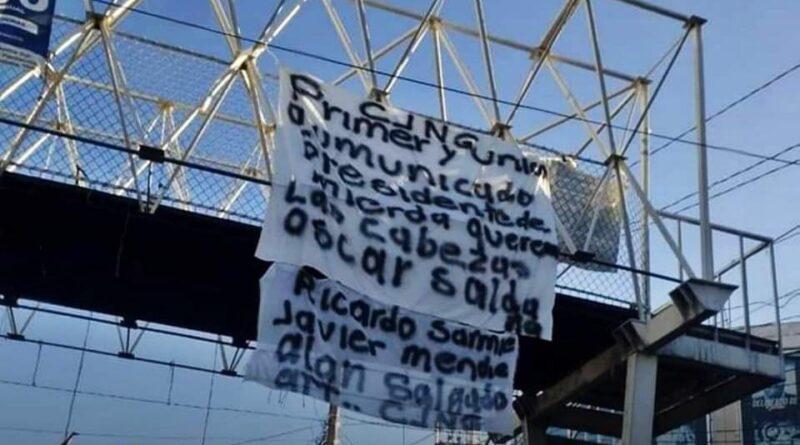 CJNG
Primer y unico
comunicado
Presidente de
mierda queremos
Las cabezas
oscar salda
ña
Ricardo Sarmie
Javier mende
alan Salgado
att.. CJNG